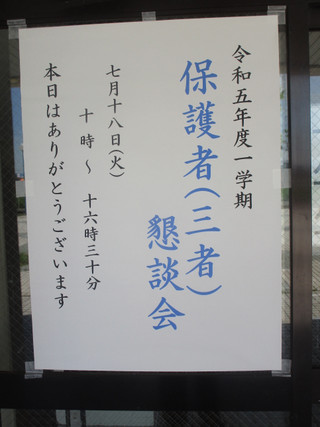 令和五年度一学期
保護者(三者)
懇談会
七月十八日(火)
十時～十六時三十分
本日はありがとうございます